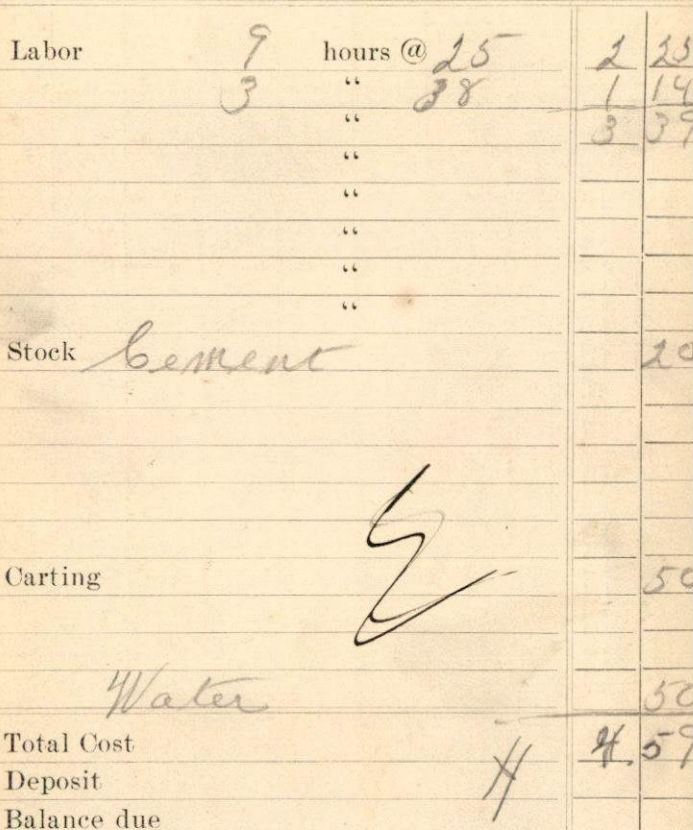 Labor 9 hours @ 25 2 25
3 " 38 1 14
" 3 39
"
"
"
"
"
Stock Cement 20
Carting 50
Water 50
Total Cost 4.59
Deposit
Balance due